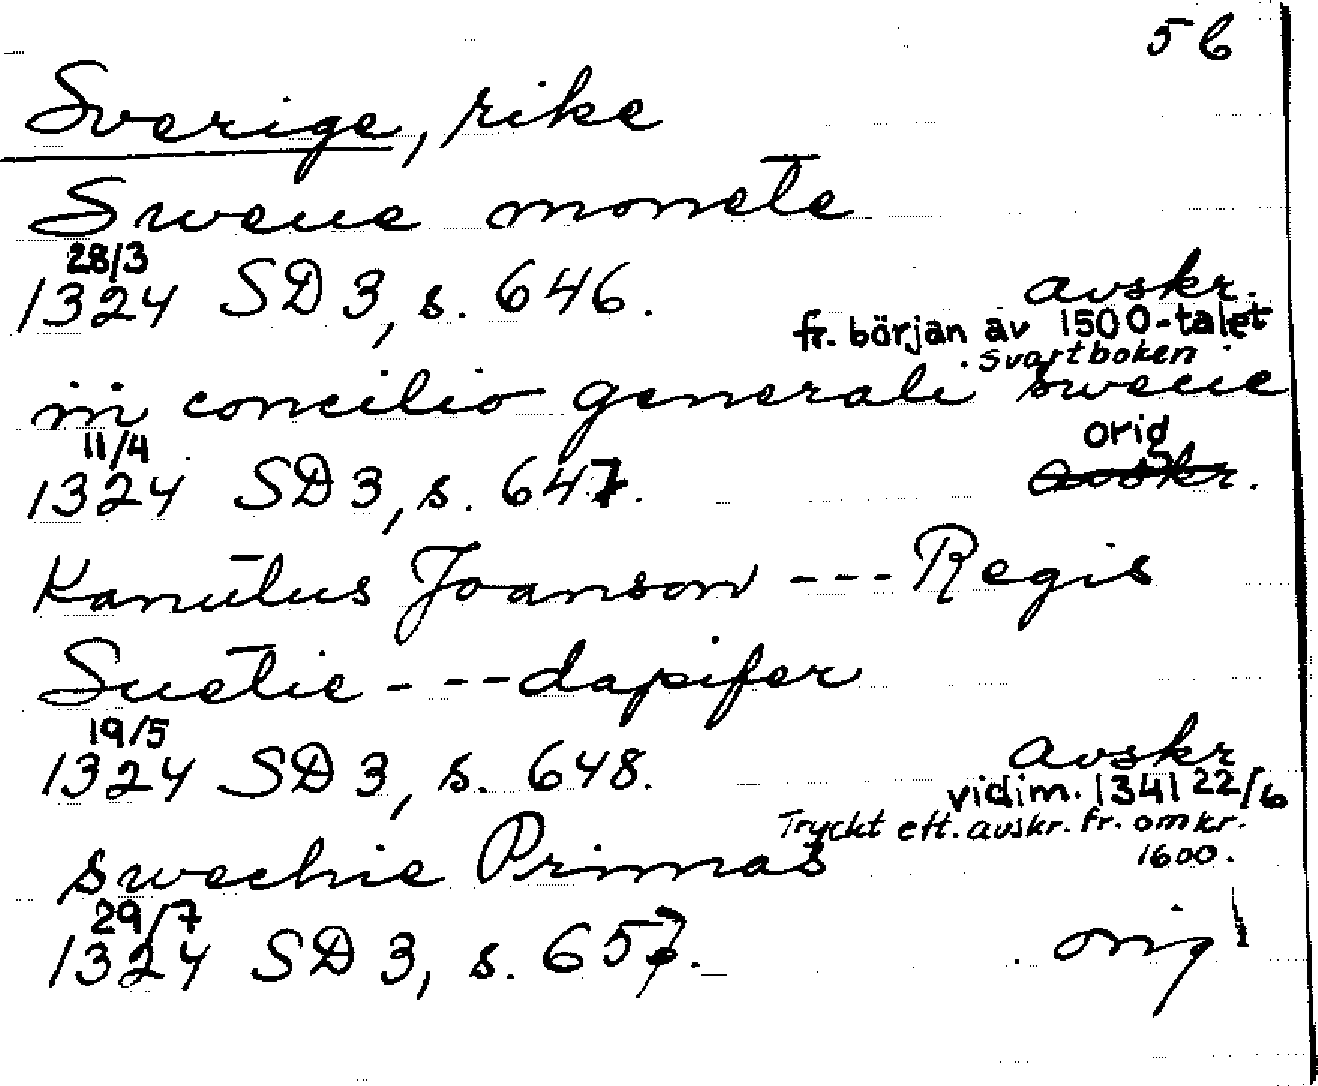 56
Sverige, rike
Sweue monete
28/3
1324 SD 3, s. 646. avskr.
fr. början av 1500-talet
svartboken
in concilio generali sweue
11/4 orig
1324 SD 3, s. 647. avskr.
Kanutus Joanson --- Regis
Suetie --- dapifer
19/5
1324 SD 3, s. 648. avskr
vidim. 1341 22/6
Tryckt eft. avskr. fr. omkr.
1600.
swechie Primas
29/7
1324 SD 3, s. 657. orig